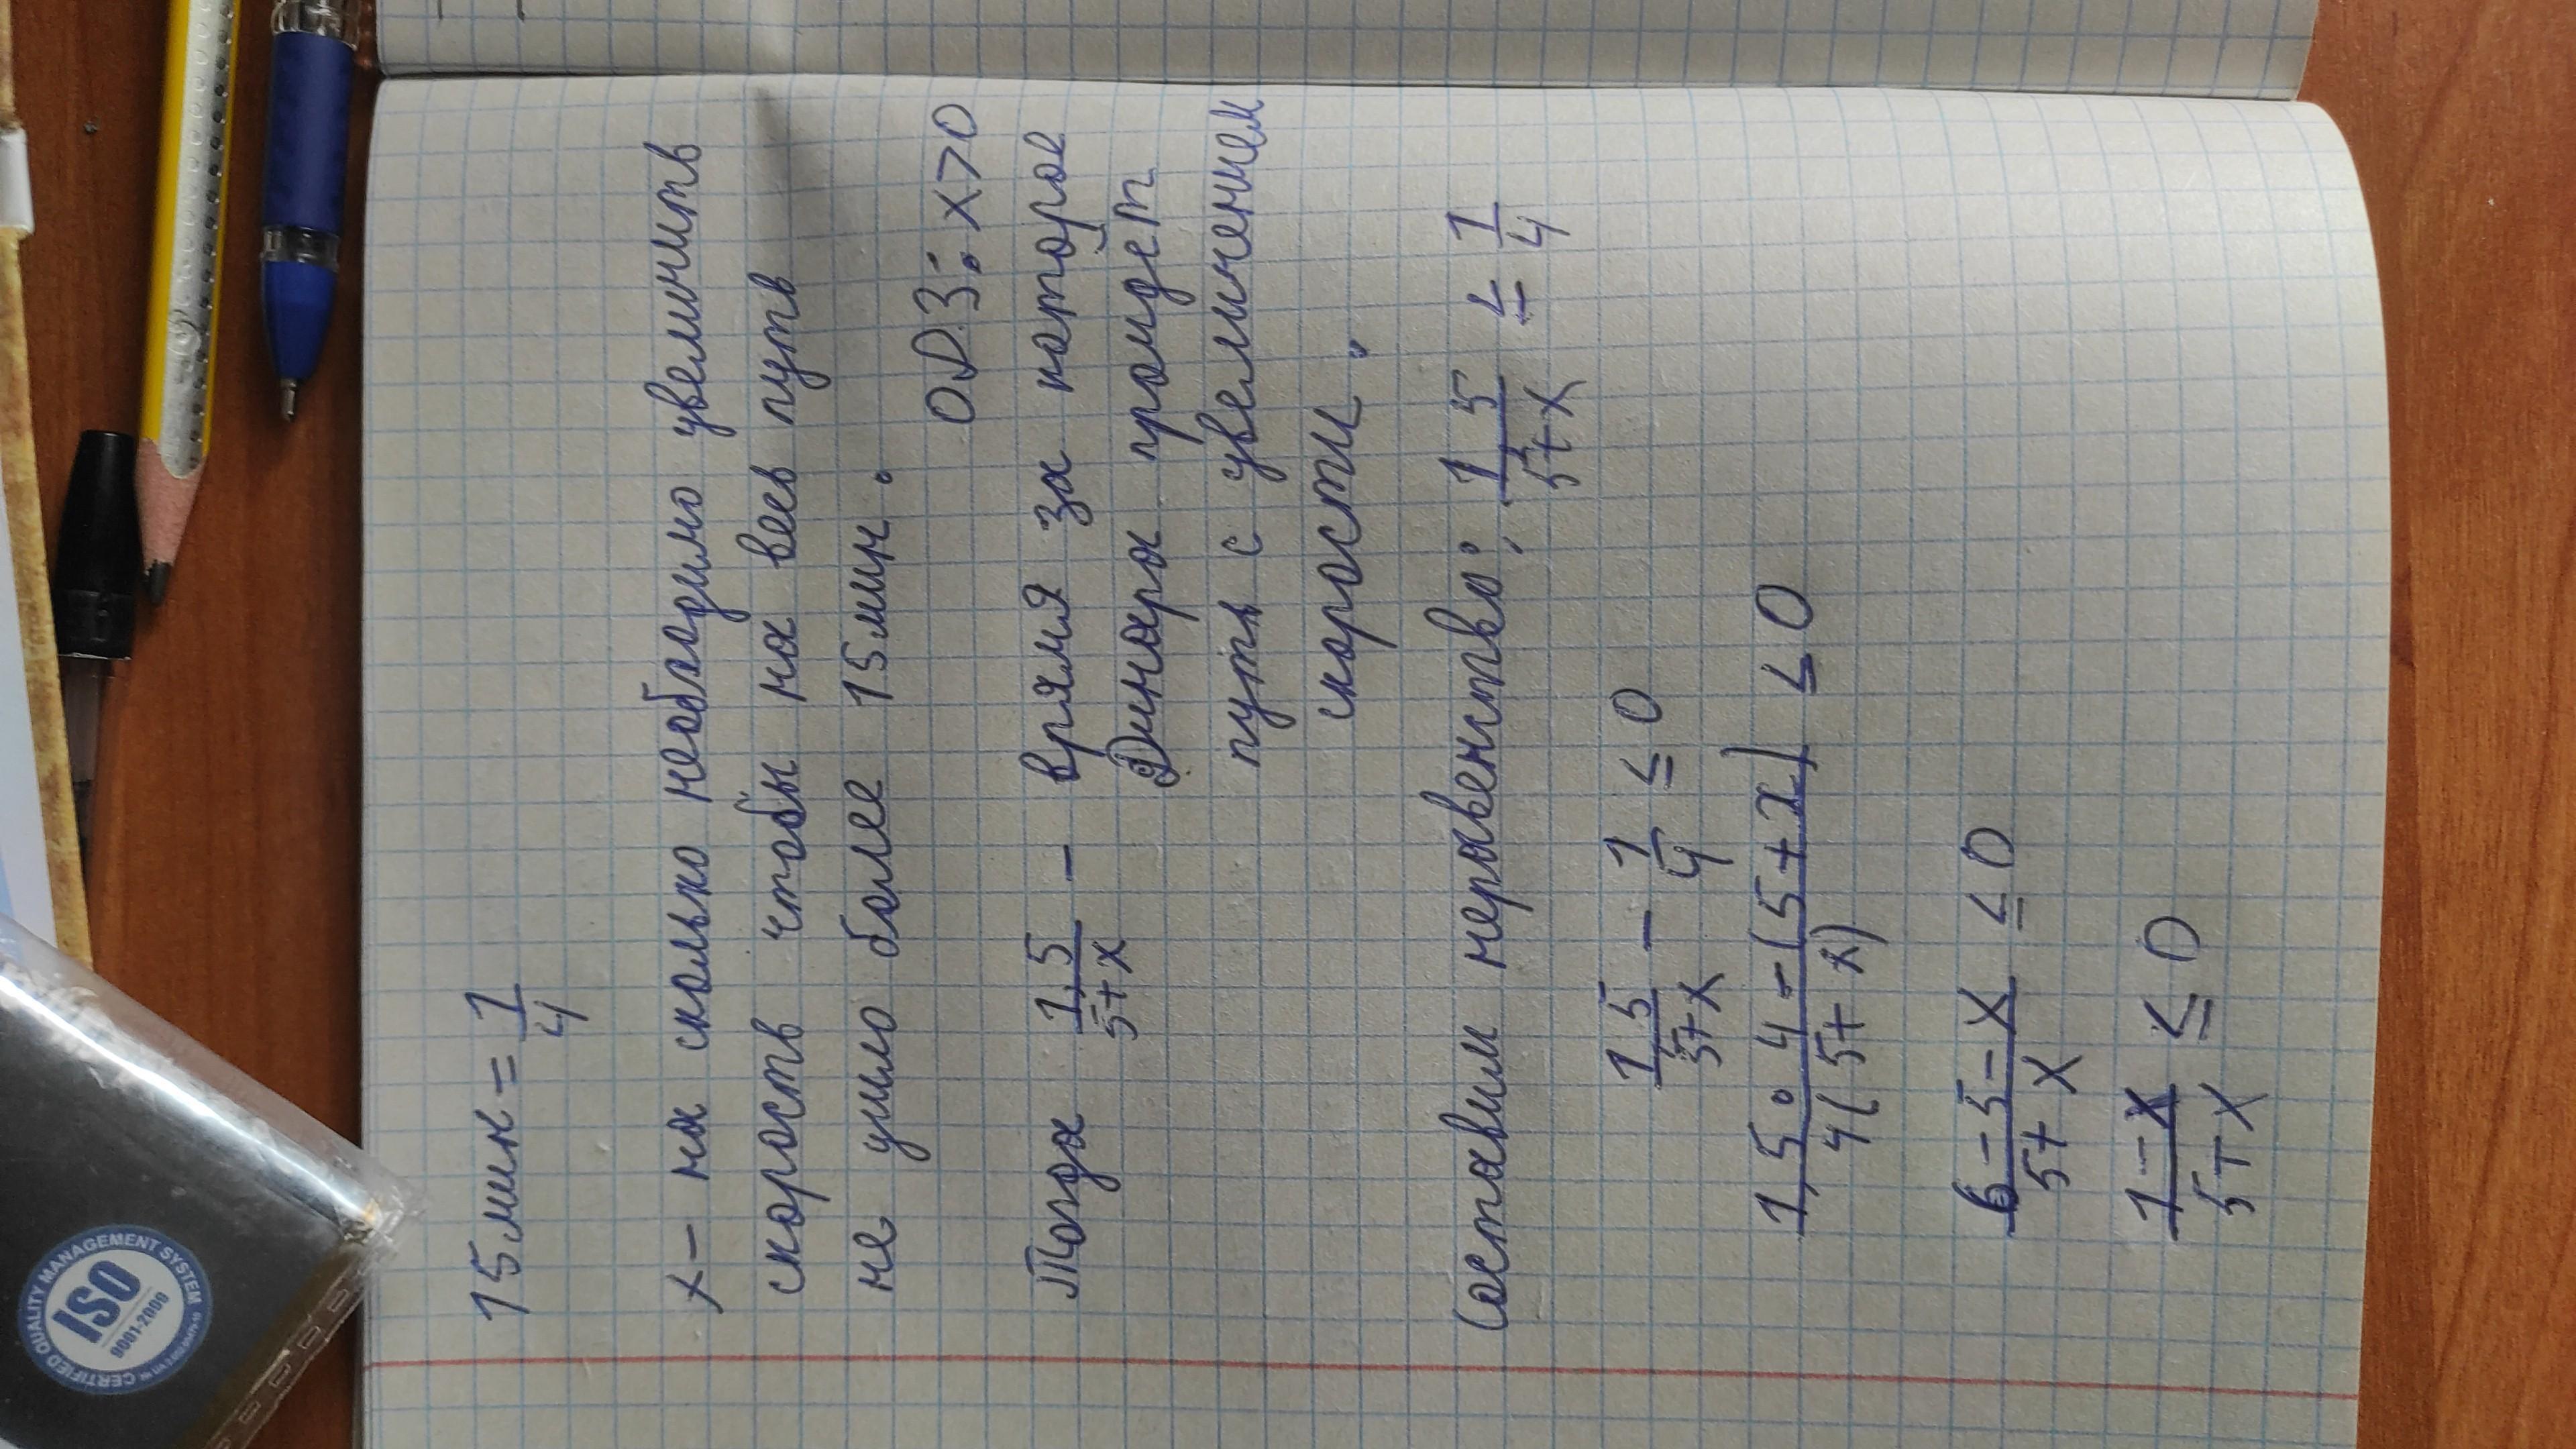 15 мин = 1/4
x - на сколько необходимо увеличить
скорость чтобы на весь путь
не ушло более 15 мин.
О.Д.З: x>0
Тогда 1,5/5+x - время за которое
Динара пройдет
путь с увеличением
скорости.
Составим неравенство: 1,5/5+x ≤ 1/4
1,5/5+x - 1/4 ≤ 0
1,5·4-(5+x)/4(5+x) ≤ 0
6-5-x/5+x ≤ 0
1-x/5+x ≤ 0
CERTIFIED QUALITY MANAGEMENT SYSTEM
ISO
9001-2009